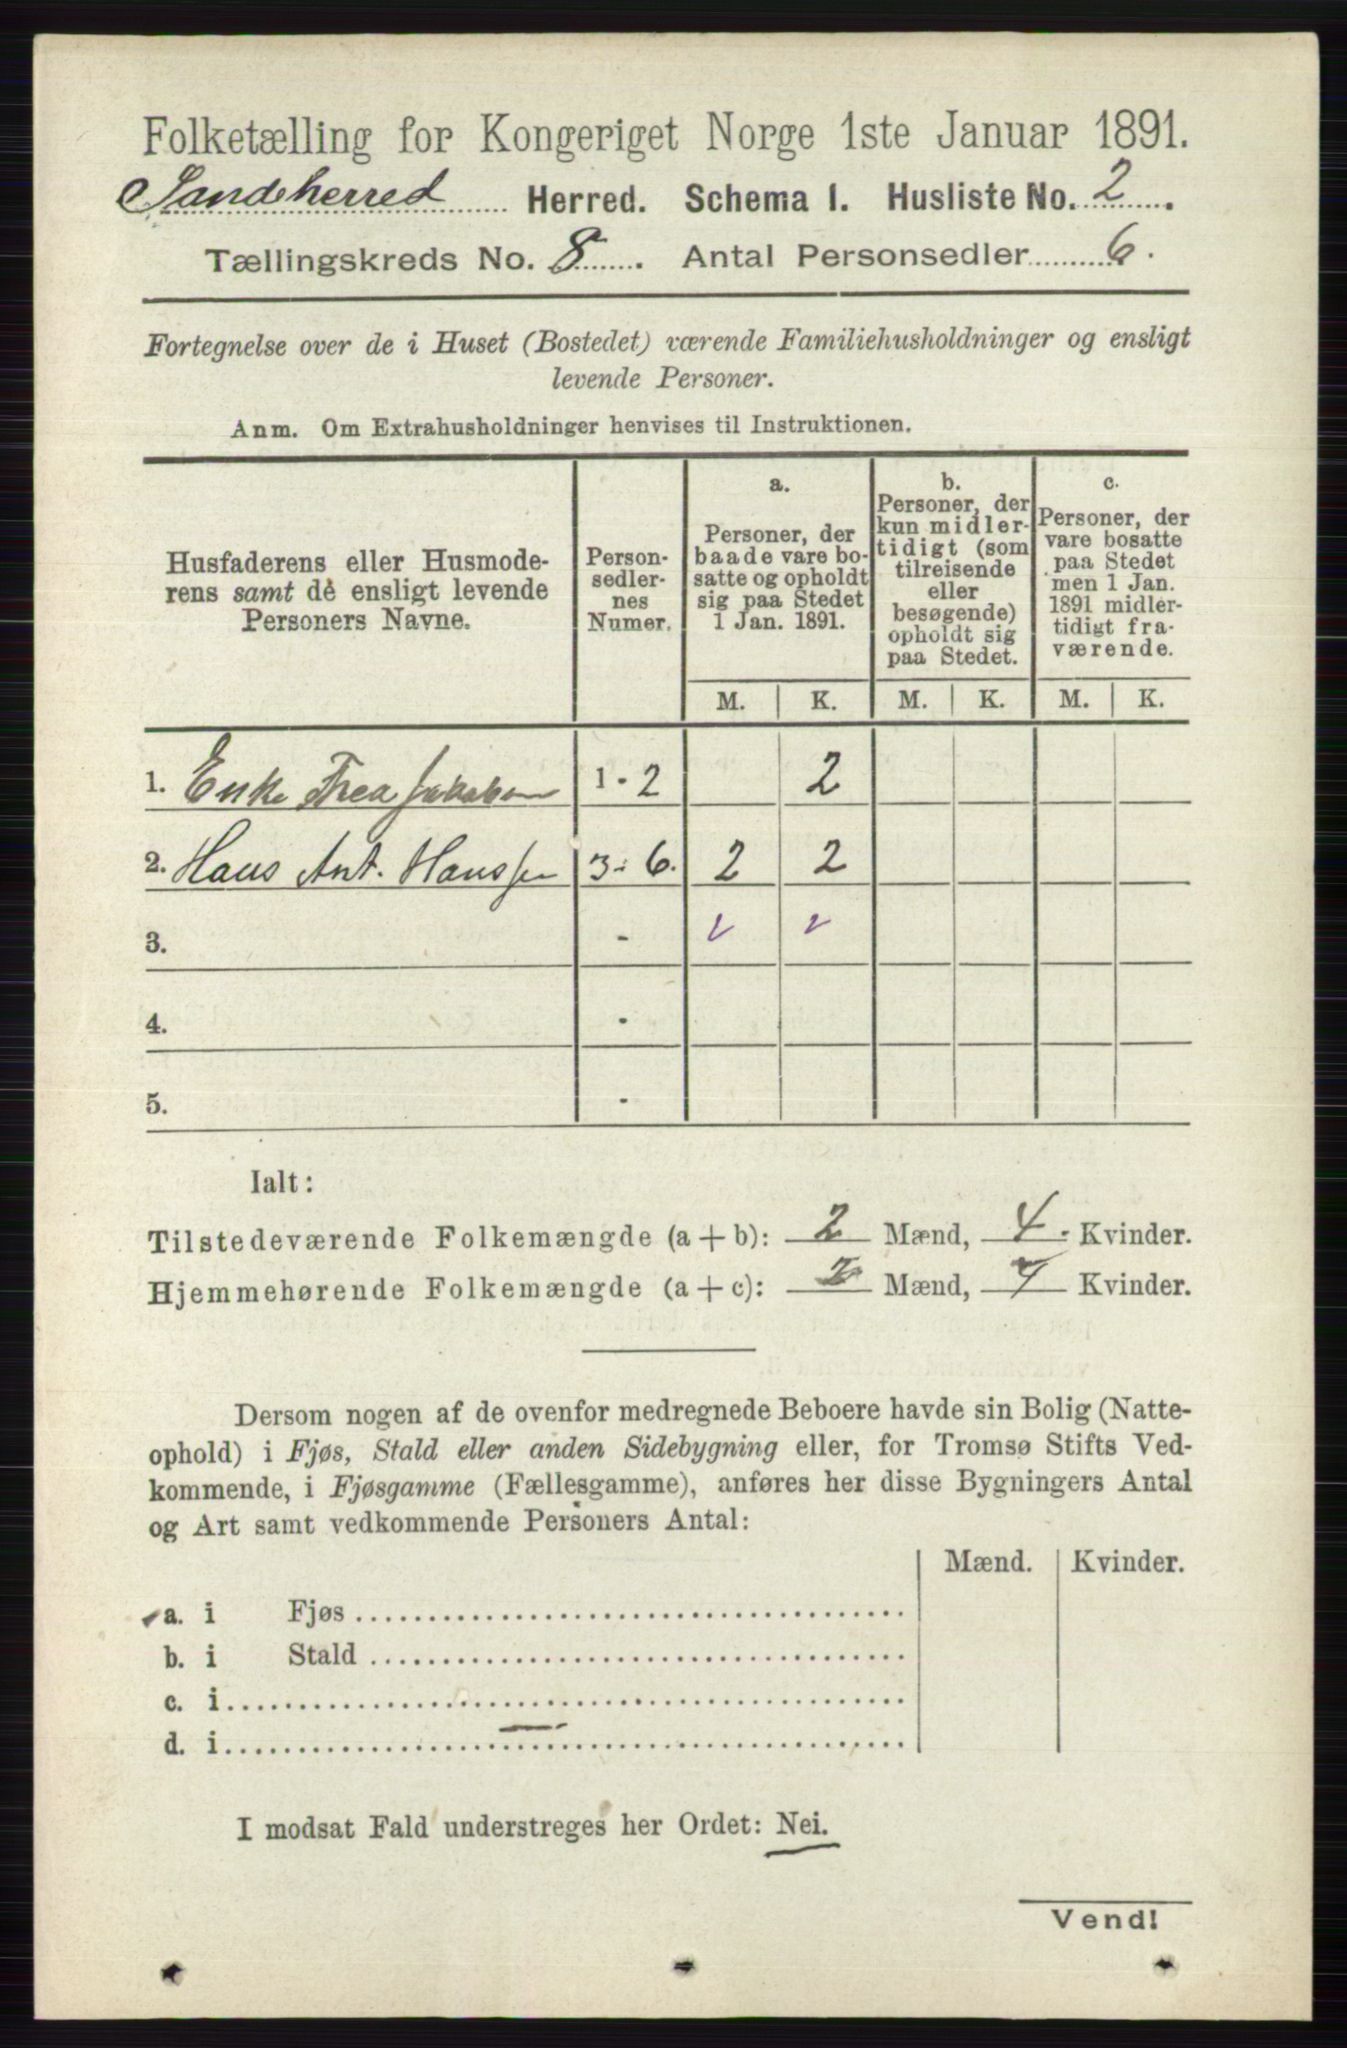 Folketælling for Kongeriget Norge 1ste Januar 1891.
Sandeherred Herred. Schema 1. Husliste No. 2.
Tællingskreds No. 8. Antal Personsedler 6.
Fortegnelse over de i Huset (Bostedet) værende Familiehusholdninger og ensligt
levende Personer.
Anm. Om Extrahusholdninger henvises til Instruktionen.
Husfaderens eller Husmode-
rens samt de ensligt levende
Personers Navne.
Person-
sedler-
nes
Numer.
a.
Personer, der
baade vare bo-
satte og opholdt
sig paa Stedet
1 Jan. 1891.
b.
Personer, der
kun midler-
tidigt (som
tilreisende
eller
besøgende)
opholdt sig
paa Stedet.
c.
Personer, der
vare bosatte
paa Stedet
men 1 Jan.
1891 midler-
tidigt fra-
værende.
M. K. M. K. M. K.
1. Enke Thea Jakobsen 1 - 2 2
2. Hans Ant. Hanssen 3 - 6. 2 2
3. -
4. -
5. -
Ialt:
Tilstedeværende Folkemængde (a + b): 2 Mænd, 4 Kvinder.
Hjemmehørende Folkemængde (a + c): 2 Mænd, 4 Kvinder.
Dersom nogen af de ovenfor medregnede Beboere havde sin Bolig (Natte-
ophold) i Fjøs, Stald eller anden Sidebygning eller, for Tromsø Stifts Ved-
kommende, i Fjøsgamme (Fællesgamme), anføres her disse Bygningers Antal
og Art samt vedkommende Personers Antal:
Mænd. Kvinder.
a. i Fjøs
b. i Stald
c. i
d. i
I modsat Fald understreges her Ordet: Nei.
Vend!